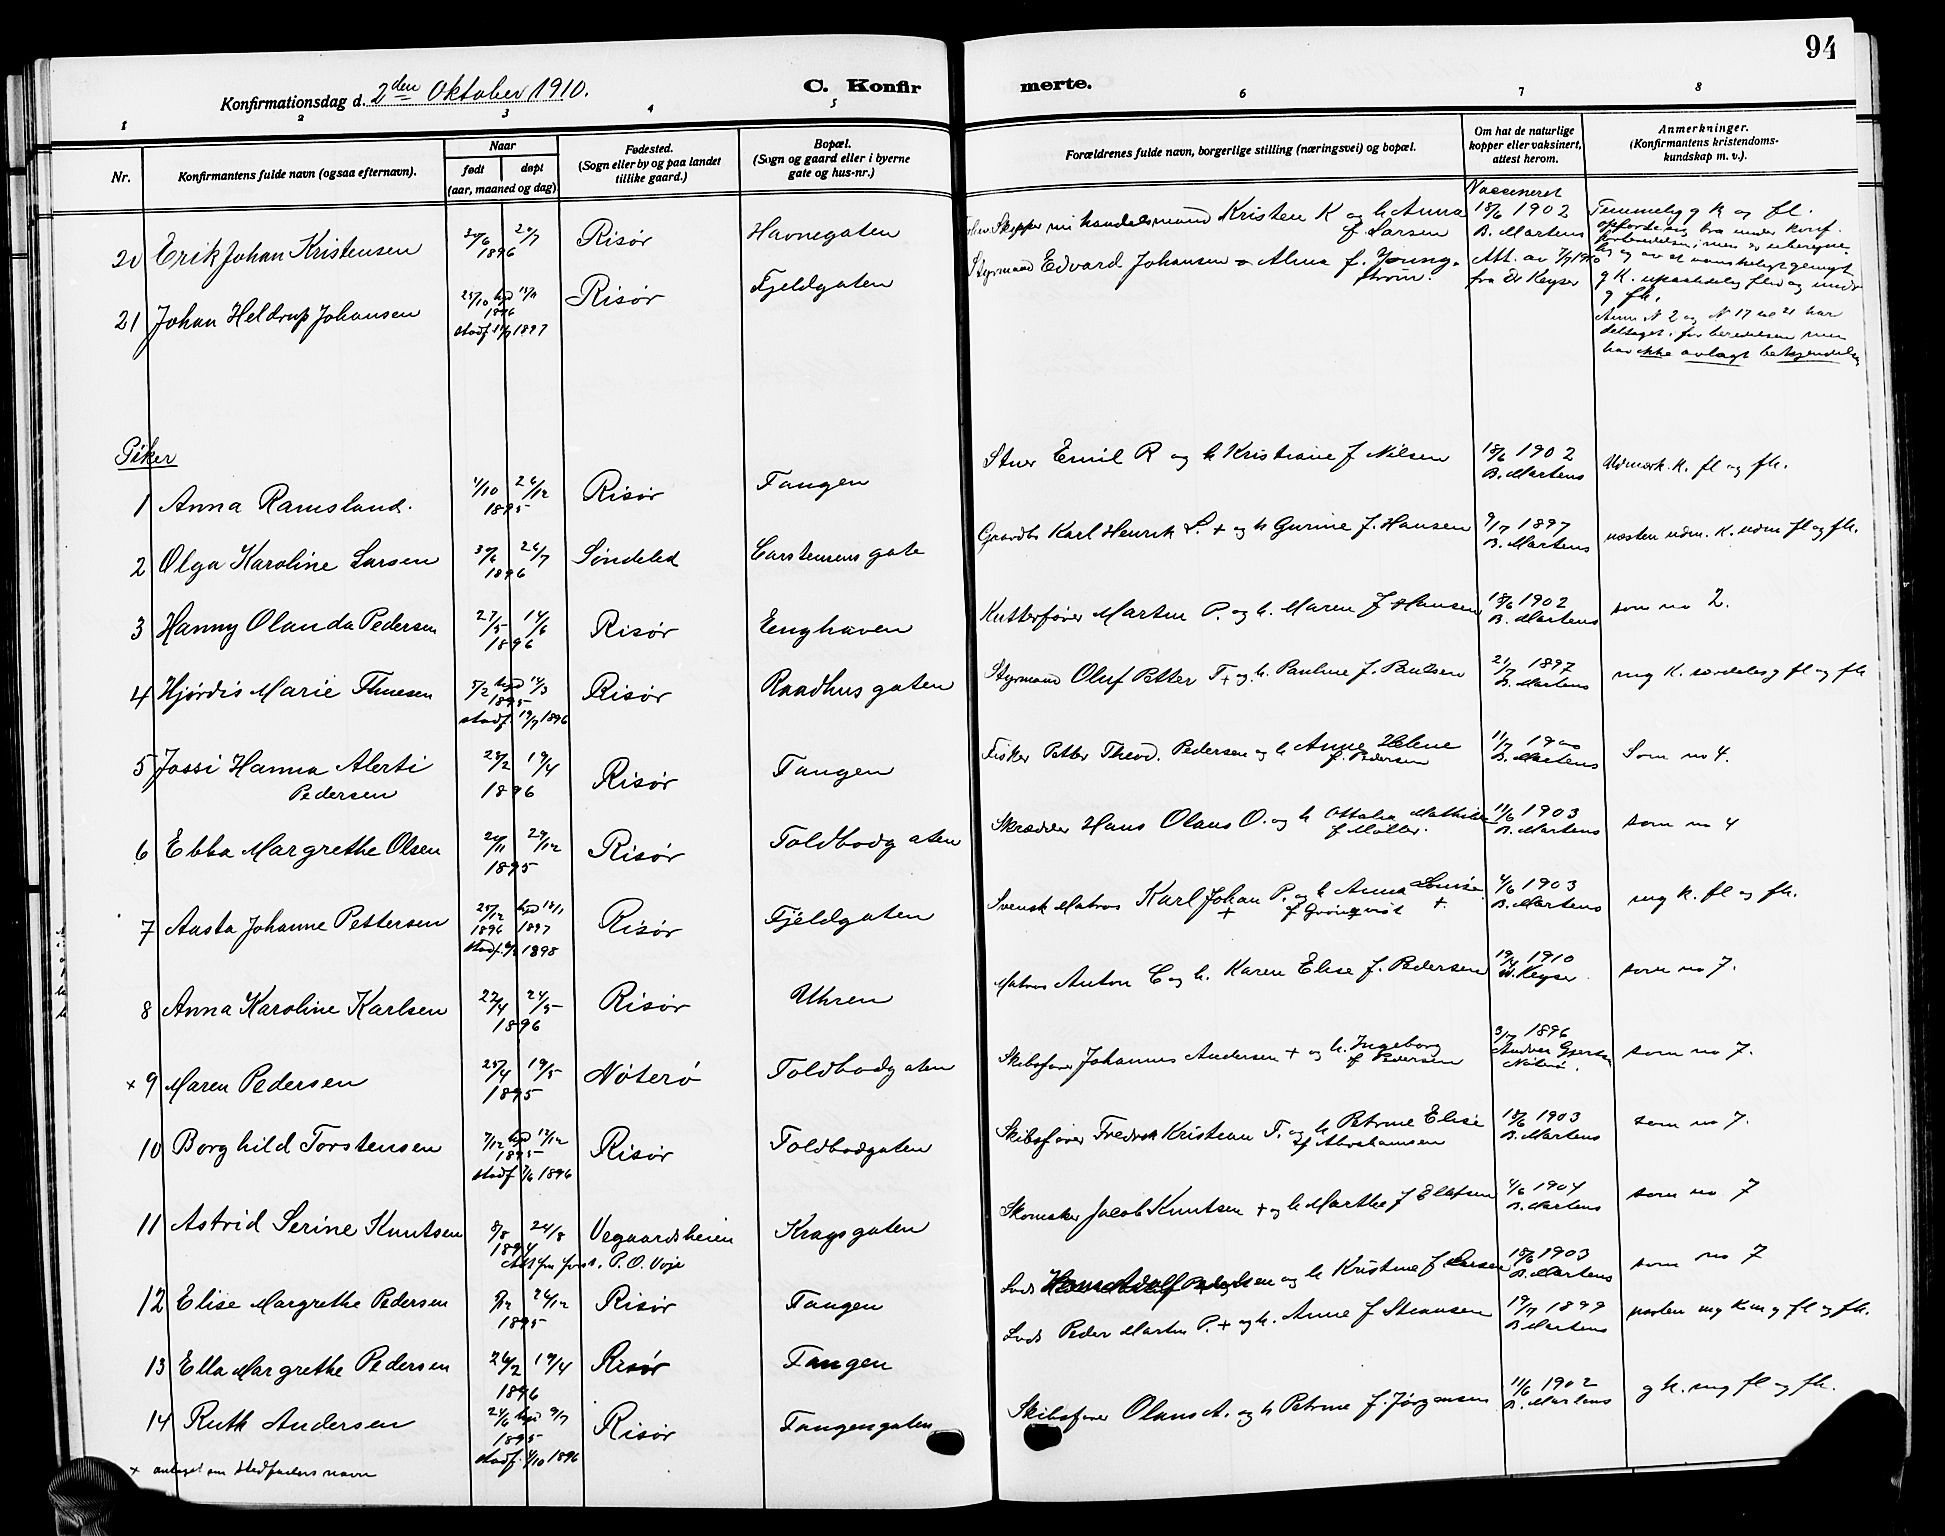 94
Konfirmationsdag d. 2den Oktober 1910.
C. Konfirmerte.
1 2 3 4 5 6 7 8
Nr.
Konfirmantens fulde navn (ogsaa efternavn).
Naar
født døpt
(aar, maaned og dag)
Fødested.
(Sogn eller by og paa landet
tillike gaard.)
Bopæl.
(Sogn og gaard eller i byerne
gate og hus-nr.)
Forældrenes fulde navn, borgerlige stilling (næringsvei) og bopæl.
Om hat de naturlige
kopper eller vaksinert,
attest herom.
Anmerkninger.
(Konfirmantens kristendoms-
kundskap m. v.).
20 Erik Johan Kristensen 1896 Risør Havnegaten
Skipper nu handelsmand Kristen K og h Anna
f. Larsen
Vaccineret
18/6 1902
B. Martens
Temmelig g k og fl.
21 Johan Heldrup Johansen 25/10 hjd 15/11 1896 Risør Fjeldgaten
stadf 1897
Styrmand Edvard Johansen o Alma f. Young-
strøm.
Att. av
fra Dr Keyser
Anm N 2 og N 17 til 21 har
deltaget i forberedelsen men
har ikke avlagt bekjendelse
Piker
1 Anna Ramsland. 4/10 26/12 1895 Risør Tangen
Emil R og h Kristiane f Nilsen
18/6 1902
B. Martens
Udmerk. k. fl og fh.
2 Olga Karoline Larsen 30/6 26/7 1896 Søndeled Carstensens gate
Karl Henrik L. + og h Gurine f. Hansen
9/7 1897
B. Martens
næsten udm. k. udm fl og fh.
3 Hanny Olanda Pedersen 27/5 14/6 1896 Risør Enghaven
Kutterfører Martin P. og h. Maren f Hansen
18/6 1902
B. Martens
som no 2.
4 Hjørdis Marie Thuesen 5/2 hjd 14/3 1895 Risør Raadhusgaten
stadf. 19/7 1896
Styrmand Oluf Petter T + og h. Pauline f. Paulsen
21/7 1897
B. Martens
mg k. særdeles g fl og fh
5 Jossi Hanna Alerti
Pedersen 28/2 19/4 1896 Risør Tangen
Fisker Petter Theod. Pedersen og h Anne Helene
f. Pedersen
11/7 1900
B. Martens
Som no 4.
6 Ebba Margrethe Olsen 29/12 1895 Risør Toldbodgaten
Skrædder Hans Olaus O. og h Ottalia Mathilde
f Møller.
11/6 1903
B. Martens
som no 4
7 Aasta Johanne Pettersen 25/12 1896 hjd 1897 Risør Fjeldgaten
stadf. 1898
Svensk Matros Karl Johan P. og h Anna Lovise
+ f Grönqvist +
4/6 1903
B. Martens
mg k. fl og fh.
8 Anna Karoline Karlsen 27/4 24/5 1896 Risør Uhren
Matros Anton C og h. Karen Elise f. Pedersen
19/4 1910
Dr. Keyser
som no 7.
× 9 Maren Pedersen 25/4 19/5 1895 Nøterø Toldbodgaten
Skibsfører Johannes Andersen + og h. Ingeborg
f Pedersen
3/7 1896
Nøterø.
som no 7.
10 Borghild Torstensen 7/12 hjd 17/12 1895 Risør Toldbodgaten
stadf 1896
Skibsfører Fredrik Kristian T. og h Petrine Elise
f Abrahamsen
18/6 1903
B. Martens
som no 7.
11 Astrid Serine Knutsen 8/8 24/8 1894 Vegaardsheien Kragsgaten
P. O. Vøje
Skomaker Jacob Knutsen + og h Marthe f Ellefsen
4/6 1904
B. Martens
som no 7
12 Elise Margrethe Pedersen 26/12 1895 Risør Tangen
Lods Hans Adolf Pedersen og h Kristine f Larsen
18/6 1903
B. Martens
som no 7
13 Ella Margrethe Pedersen 26/2 19/4 1896 Risør Tangen
Lods Peder Martin P. + og h. Anne f Steansen
19/7 1899
B Martens
næsten mg k m g fl og fh.
14 Ruth Andersen 24/6 hjd 9/7 1895 Risør Tangengaten
stadf. 4/10 1896
Skibsfører Olaus A. og h Petrine f. Jørgensen
11/6 1902
B. Martens
g k. mg fl og fh.
× antaget sin stedfaders navn